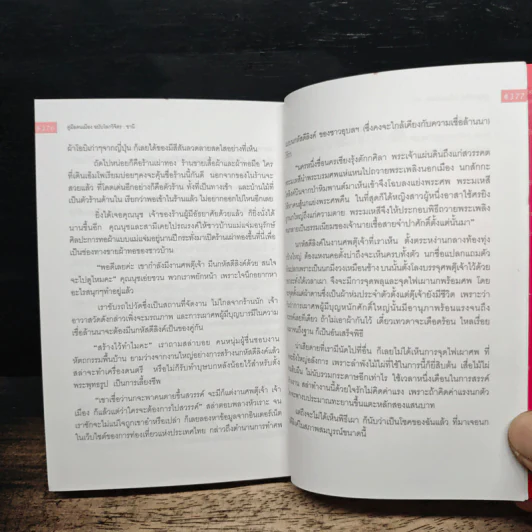 176
คู่มือคนเมือง ฉบับวิจะวิจิตร · ชานี
ผ้าโอบิเก่าๆจากญี่ปุ่น ก็เลยได้ของมีสีสันลวดลายสดใสอย่างที่เห็น
ถัดไปหน่อยก็คือร้านเม่าทอง ร้านขายเสื้อผ้าและผ้าทอมือ ใคร
ที่เดินเข้มใจเรียมบ่อยๆคงจะคุ้นชื่อร้านนี้กันดี นอกจากของในร้านจะ
สวยแล้ว ที่โดดเด่นอีกอย่างก็คือตัวร้าน ทั้งที่เป็นทางเข้า และบ้านไม้ที่
เป็นตัวร้านด้านใน เรียกว่าพอเข้าในร้านแล้ว ไม่อยากออกไปไหนอีกเลย
ยิ่งได้เจอคุณนุช เจ้าของร้านผู้มีอัธยาศัยด้วยแล้ว ก็ยิ่งนั่งได้
นานขึ้นอีก คุณนุชและสามีเคยไปรณรงค์ให้ชาวบ้านแม่แจ่มอนุรักษ์
ศิลปะการทอผ้าแบบแม่แจ่มอยู่นานปีกระทั่งมาเปิดร้านเม่าทองขึ้นที่นี่เพื่อ
เป็นช่องทางขายผ้าทอของชาวบ้าน
"พอดีเลยค่ะ เขากำลังมีงานศพตุ๊เจ้า มีนกหัสดีลิงค์ด้วย สนใจ
จะไปดูไหมคะ" คุณนุชเอ่ยชวน พวกเราพยักหน้า เพราะใจนึกอยากหา
อะไรสนุกๆทำอยู่แล้ว
เราขับรถไปวัดซึ่งเป็นสถานที่จัดงาน ไม่ไกลจากร้านนัก เจ้า
อาวาสวัดดังกล่าวเพิ่งจะมรณภาพ และการเผาศพผู้มีบุญบารมีในความ
เชื่อล้านนาจะต้องมีนกหัสดีลิงค์เป็นของคู่กัน
"สร้างไว้ทำไมคะ" เราถามสล่าบอย คนหนุ่มผู้ชื่นชอบงาน
หัตถกรรมพื้นบ้าน ยามว่างจากงานใหญ่อย่างการสร้างนกหัสดีลิงค์แล้ว
สล่าจะทำเครื่องดนตรี หรือไม่ก็รับทำบุษบกหลังน้อยไว้สำหรับตั้ง
พระพุทธรูป เป็นการเลี้ยงชีพ
"เขาเชื่อว่านกจะพาคนตายขึ้นสวรรค์ จะมีก็แต่งานศพตุ๊เจ้า เจ้าน
เมือง ก็แล้วแต่ว่าใครจะต้องการไปสวรรค์" สล่าตอบกลางหัวเราะ จน
เราชักจะไม่แน่ใจถูกเขาอำหรือเปล่า ก็เลยลองหาข้อมูลจากอินเตอร์เน็ต
ในเว็บไซต์ของการท่องเที่ยวแห่งประเทศไทย กล่าวถึงตำนานการทำศพ
177
นกหัสดีลิงค์ ของชาวอุบลฯ (ซึ่งคงจะใกล้เคียงกับความเชื่อล้านนา)
ไว้ว่า
"นครหนึ่งชื่อนครเชียงรุ้งตักกศิลา พระเจ้าแผ่นดินถึงแก่สวรรคต
พระมเหสีนำพระบรมศพแห่แหนไปถวายพระเพลิงนอกเมือง นกสักกะ
ไดลิงค์บินจากป่าหิมพานต์มาเห็นเข้าจึงโฉบลงแย่งพระศพ พระมเหสี
หาคนสู้นกเอาพระศพคืน ในที่สุดก็ได้หญิงสาวผู้หนึ่งอาสาใช้ศรยิง
นกใหญ่ถึงแก่ความตาย พระมเหสีจึงให้ประกอบพิธีถวายพระเพลิง
กลายเป็นธรรมเนียมของเจ้านายเชื้อสายจำปาศักดิ์ตั้งแต่นั้นมา"
นกหัสดีลิงค์ในงานศพตุ๊เจ้าที่เราเห็น ตั้งตระหง่านกลางท้องทุ่ง
ช่างใหญ่ ต้องแหงนคอตั้งบ่าถึงจะเห็นครบทั้งตัว นกชื่อแปลกแถมตัว
แปลกเพราะเป็นนกมีงวงเหมือนช้าง บนนั้นตั้งโลงบรรจุศพตุ๊เจ้าไว้ด้วย
พระครั้งได้เวลาเผา จึงจะมีการจุดพลุและจุดไฟเผานกพร้อมศพ โดย
จะจุดไฟแต่ผ้าตาซึ่งเป็นผ้าห่มประจำตัวตั้งแต่ตุ๊เจ้ายังมีชีวิต เพราะว่า
ในการเผาผู้มีบุญหนักศักดิ์ใหญ่นั้นมีอานุภาพพร้อมแรงจน
เมื่อยทีเดียว ถ้าไม่เอาผ้ากันไว้ เดี๋ยวเทวดาจะเดือดร้อน ไหลเรื่อย
พื้นฐาน ก็เป็นอันเสร็จพิธี
น่าเสียดายที่เรามีนัดไปที่อื่น ก็เลยไม่ได้เห็นการจุดไฟเผาศพ ที่
ยิ่งใหญ่อลังการ เพราะลำพังไม้ไผ่ที่ใช้ในการนี้ก็ยี่สิบต้น เสื่อไม้ไผ่
สิบผืน ไม่นับรวมกระดาษอีกเท่าไร ใช้เวลาหนึ่งเดือนในการสวรรค์
สล่าทำงานนี้ด้วยใจรักไม่คิดค่าแรง เพราะถ้าคิดค่าแรงนกตัว
งามงบประมาณทะยานขึ้นแตะหลักสองแสนบาท
แต่ถึงจะไม่ได้เห็นพิธีเผา ก็นับว่าเป็นโชคของฉันแล้ว ที่มาเจอนก
ดีลิงค์ในสภาพสมบูรณ์ขนาดนี้